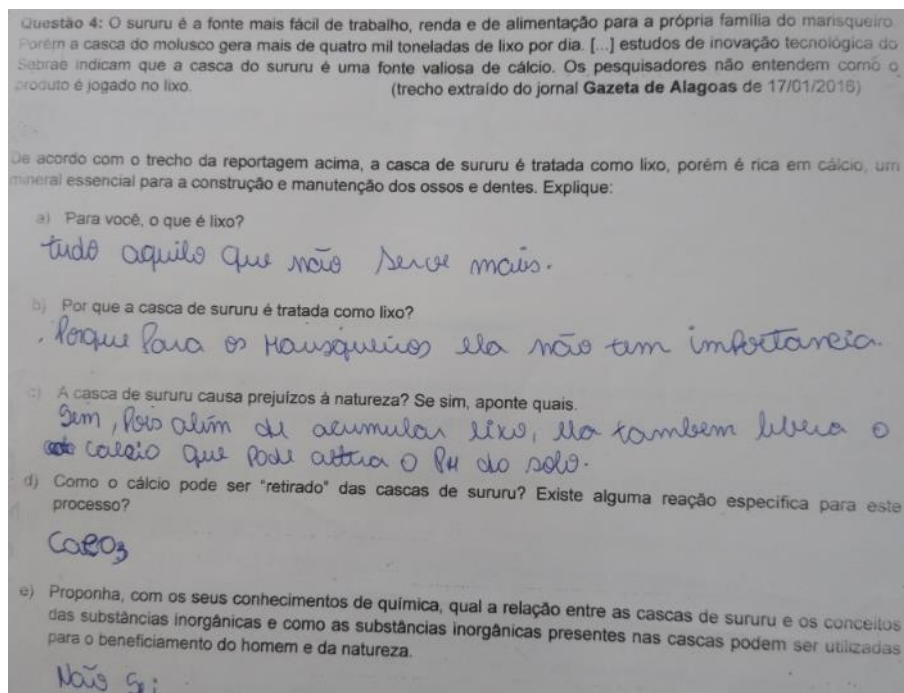 Questão 4: O sururu é a fonte mais fácil de trabalho, renda e de alimentação para a própria família do marisqueiro.
Porém a casca do molusco gera mais de quatro mil toneladas de lixo por dia. [...] estudos de inovação tecnológica do
Sebrae indicam que a casca do sururu é uma fonte valiosa de cálcio. Os pesquisadores não entendem como o
produto é jogado no lixo. (trecho extraído do jornal Gazeta de Alagoas de 17/01/2016)
De acordo com o trecho da reportagem acima, a casca de sururu é tratada como lixo, porém é rica em cálcio, um
mineral essencial para a construção e manutenção dos ossos e dentes. Explique:
a) Para você, o que é lixo?
tudo aquilo que não serve mais.
b) Por que a casca de sururu é tratada como lixo?
. Porque Para os Marisqueiros ela não tem importancia.
c) A casca de sururu causa prejuízos à natureza? Se sim, aponte quais.
Sim, Pois além de acumular lixo, ela tambem libera o
calcio que Pode altera o PH do solo.
d) Como o cálcio pode ser "retirado" das cascas de sururu? Existe alguma reação específica para este
processo?
CaCO3
e) Proponha, com os seus conhecimentos de química, qual a relação entre as cascas de sururu e os conceitos
das substâncias inorgânicas e como as substâncias inorgânicas presentes nas cascas podem ser utilizadas
para o beneficiamento do homem e da natureza.
Não Sei